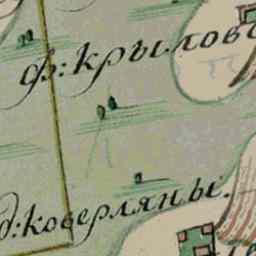 ф: Крылово
д: Коверляны.